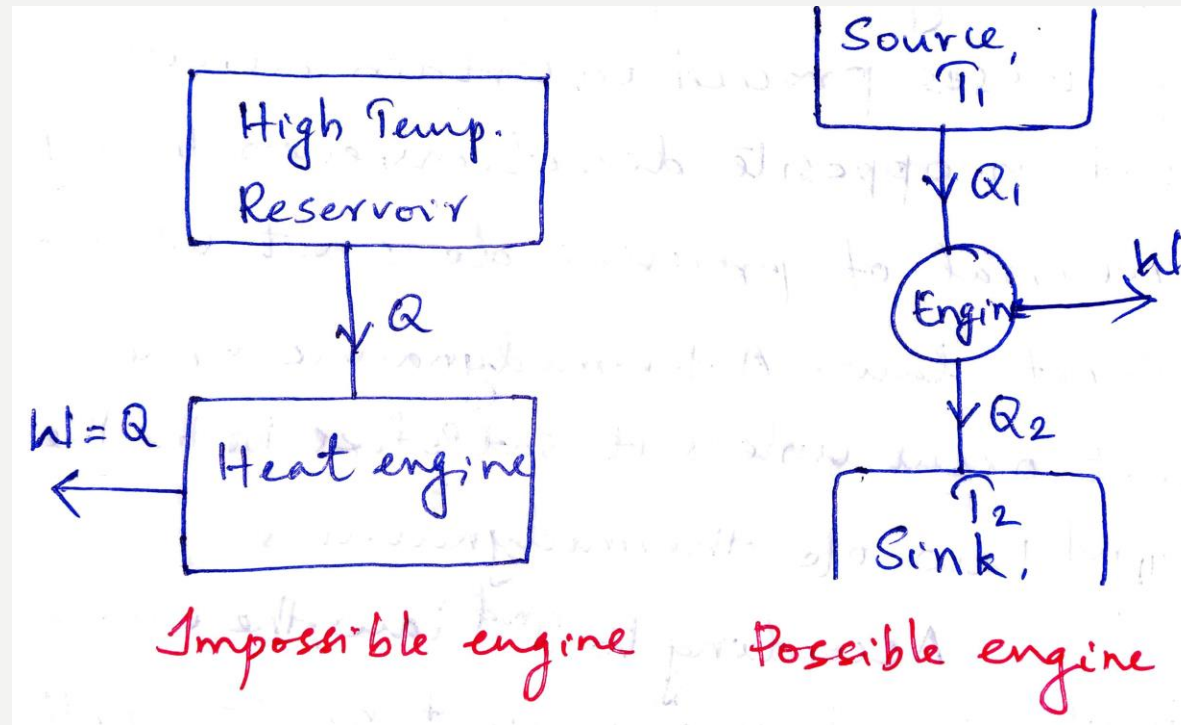 High Temp.
Reservoir
Q
W=Q
Heat engine
Impossible engine
Source,
T1
Q1
Engine
W
Q2
T2
Sink,
Possible engine